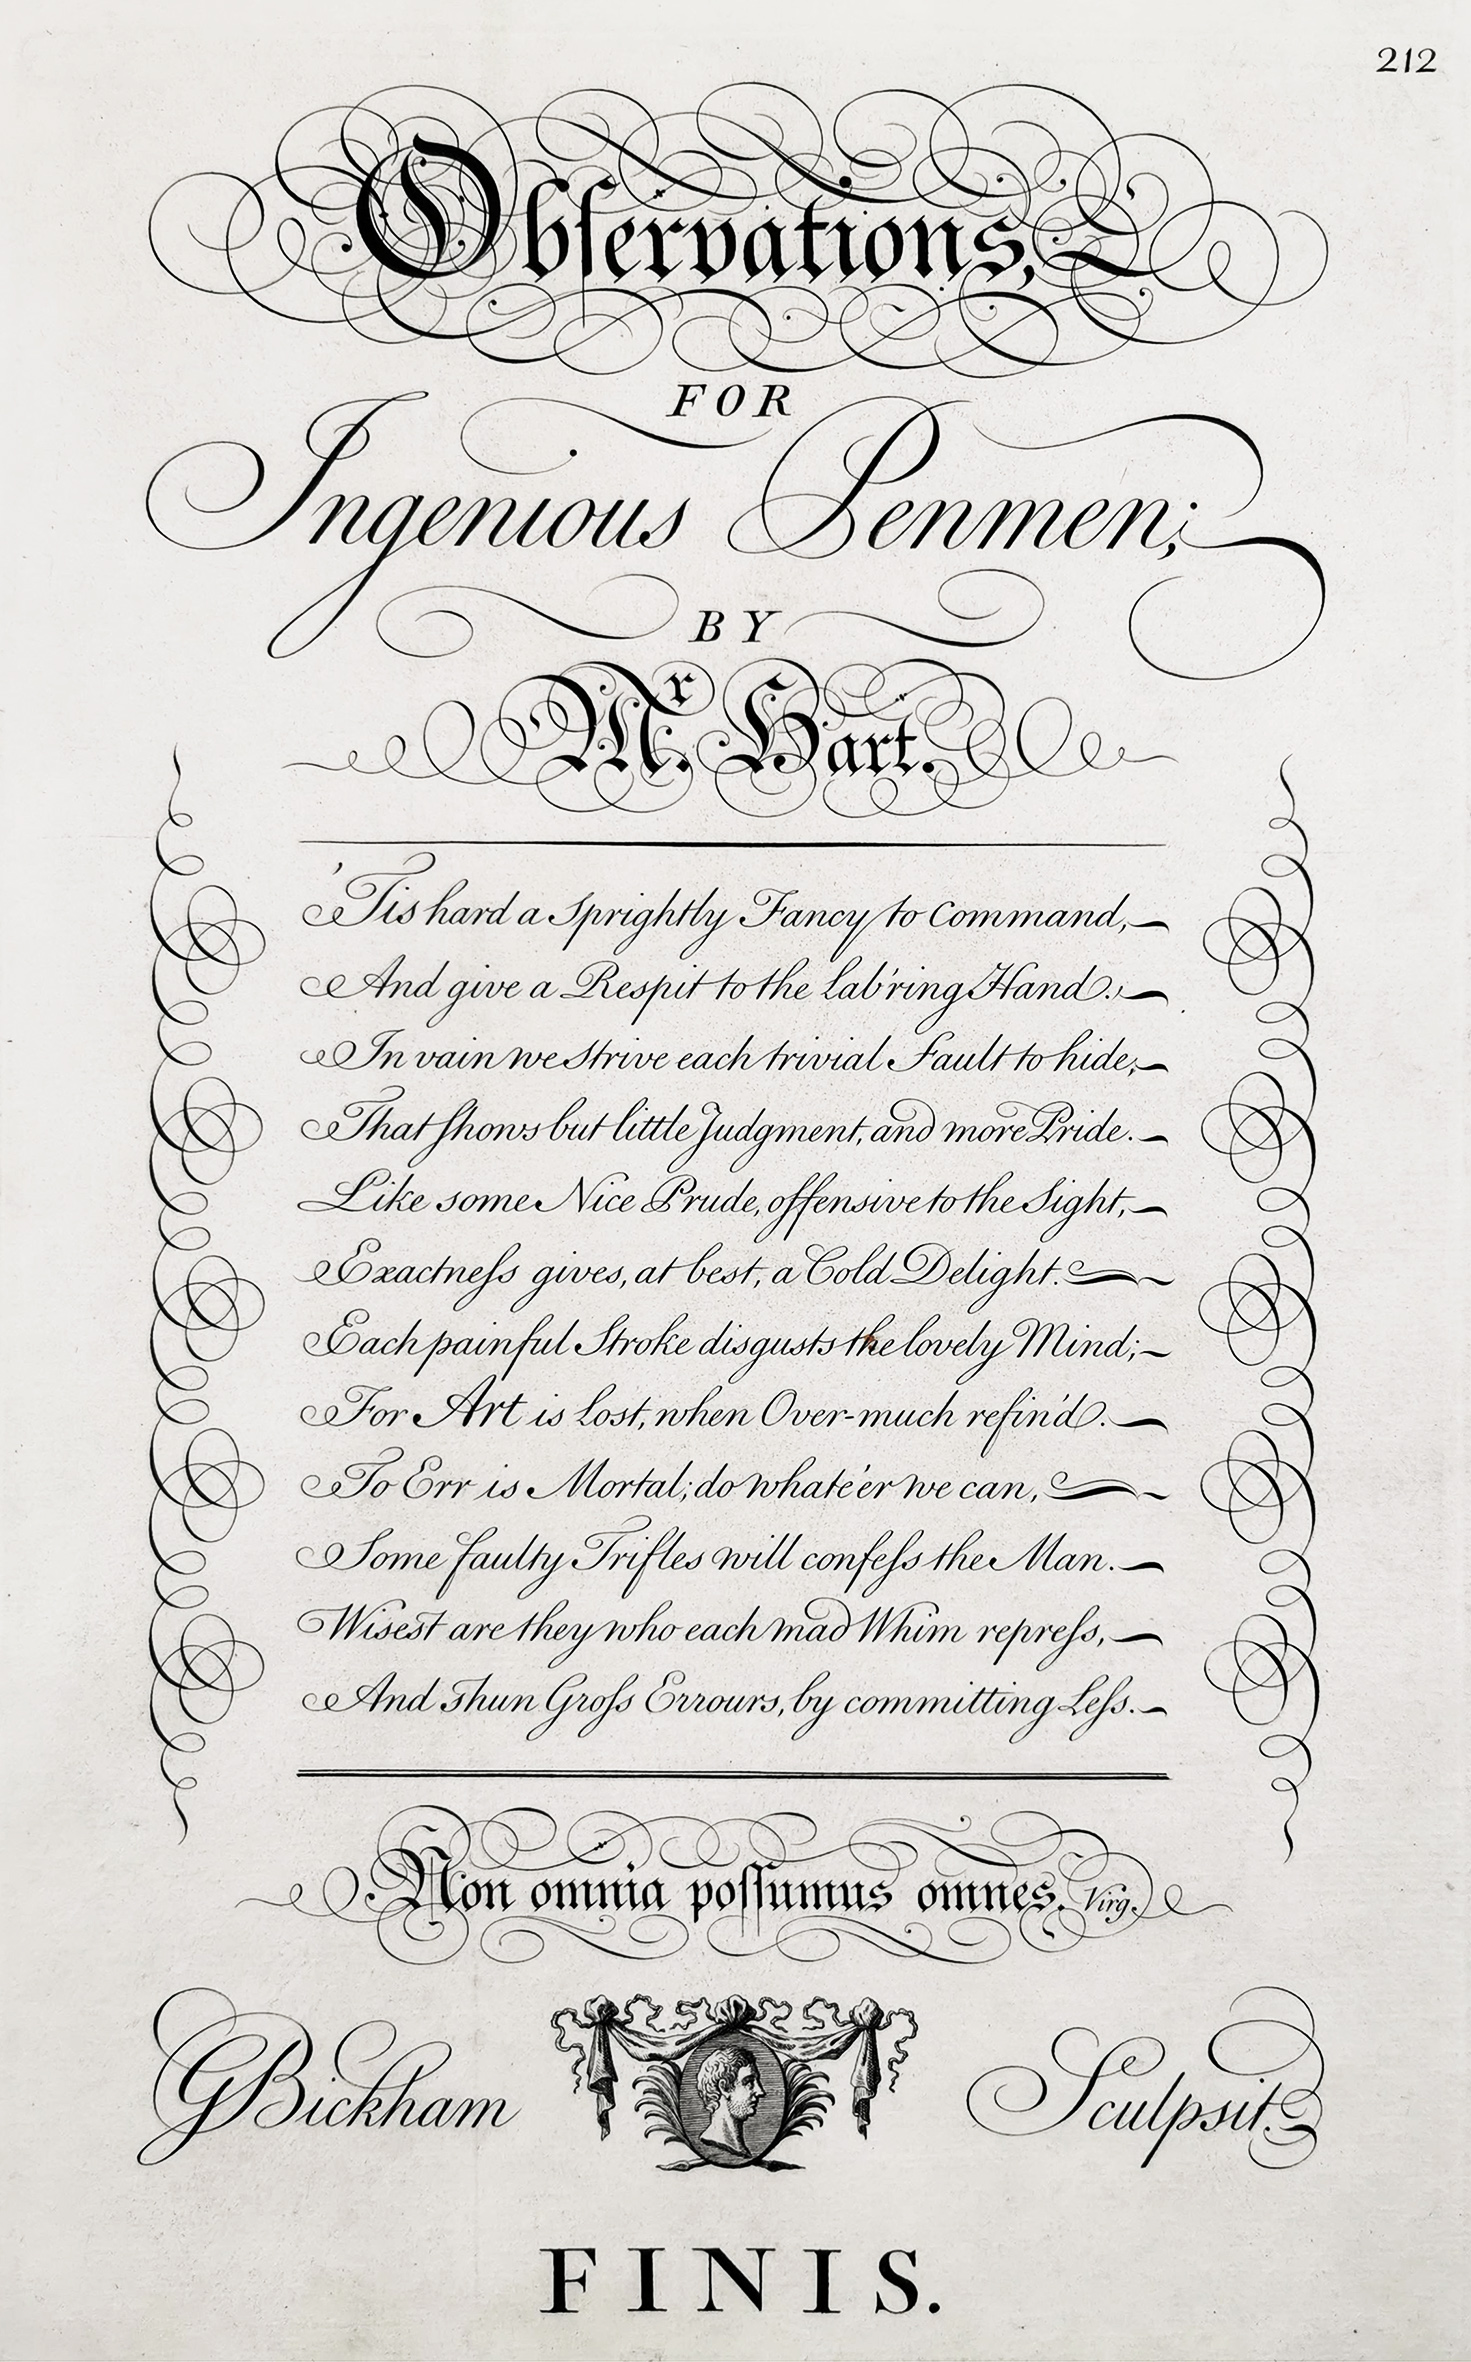 212
Obſervations,
FOR
Ingenious Penmen;
BY
Mr. Hart.
'Tis hard a Sprightly Fancy to Command,
And give a Respit to the lab'ring Hand:
In vain we Strive each trivial Fault to hide;
That ſhows but little Judgment, and more Pride.
Like some Nice Prude, offensive to the Sight,
Exactneſs gives, at best, a Cold Delight.
Each painful Stroke disgusts the lovely Mind;
For Art is Lost, when Over-much refin'd.
To Err is Mortal; do whate'er we can,
Some faulty Trifles will confeſs the Man.
Wisest are they who each mad Whim repreſs,
And shun Groſs Errours, by committing Leſs.
Non omnia poſſumus omnes. Virg.
G Bickham Sculpsit.
FINIS.